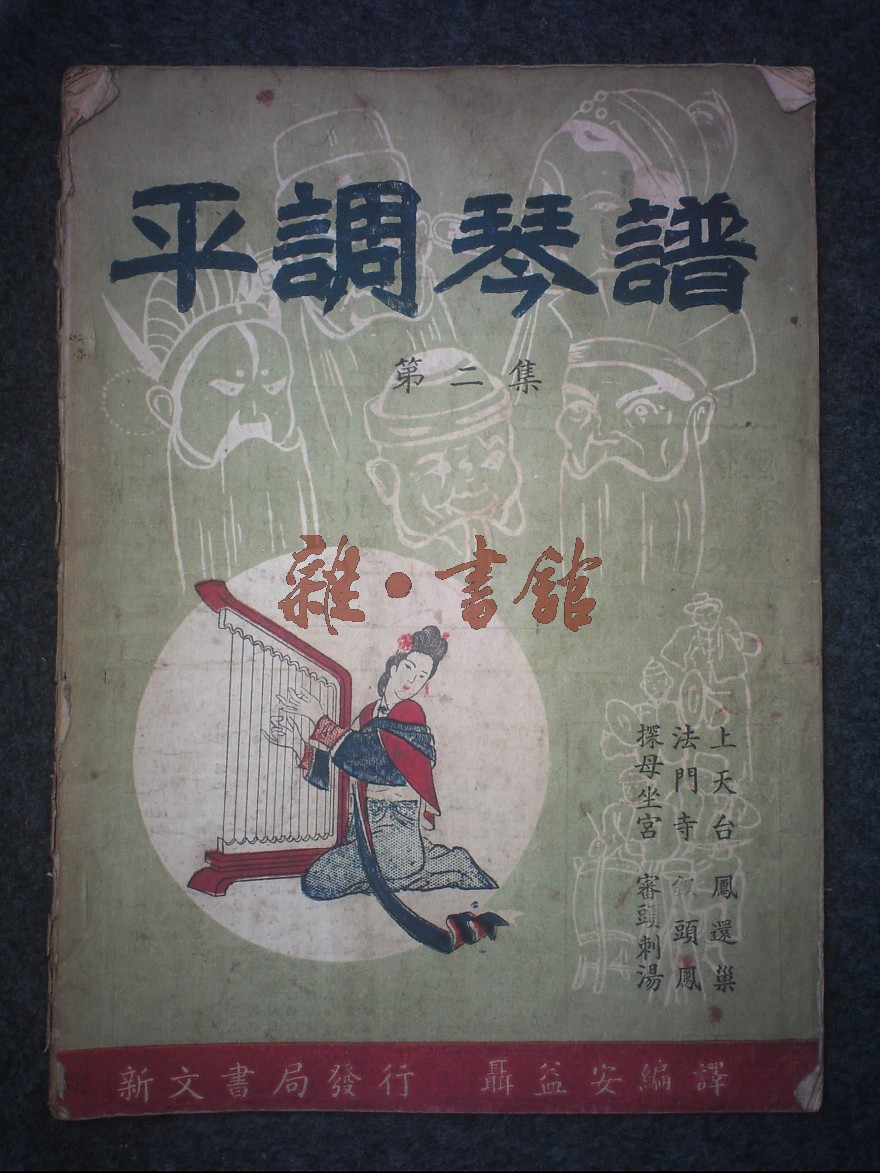 平調琴譜
第二集
雜·書館
上天台 鳳還巢
法門寺 頭鳳
探母坐宮 審頭刺湯
新文書局發行 聶益安編譯